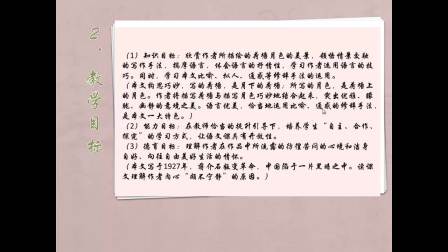 2、教学目标
（1）知识目标：欣赏作者所描绘的荷塘月色的美景，领悟情景交融
的写作手法，揣摩语言，体会语言的抒情性，学习作者运用语言的技
巧。同时，学习本文比喻、拟人、通感等修辞手法的运用。
（本文构思巧妙，写的荷塘，是月下的荷塘；所写的月色，是荷塘上
的月色。作者将描写荷塘与描写月色巧妙地结合起来，突出优雅、朦
胧、幽静的意境之美。语言优美，恰当地运用比喻、通感的修辞手法，
是本文一大特色。）
（2）能力目标：在教师恰当的提升引导下，培养学生“自主、合作、
探究”的学习方式，让语文课具有开放性。
（3）德育目标：理解作者在作品中所流露的彷徨苦闷的心境和洁身
自好、向往自由美好生活的情怀。
（本文写于1927年，蒋介石叛变革命，中国陷于一片黑暗之中。读课
文理解作者内心“颇不宁静”的原因。）